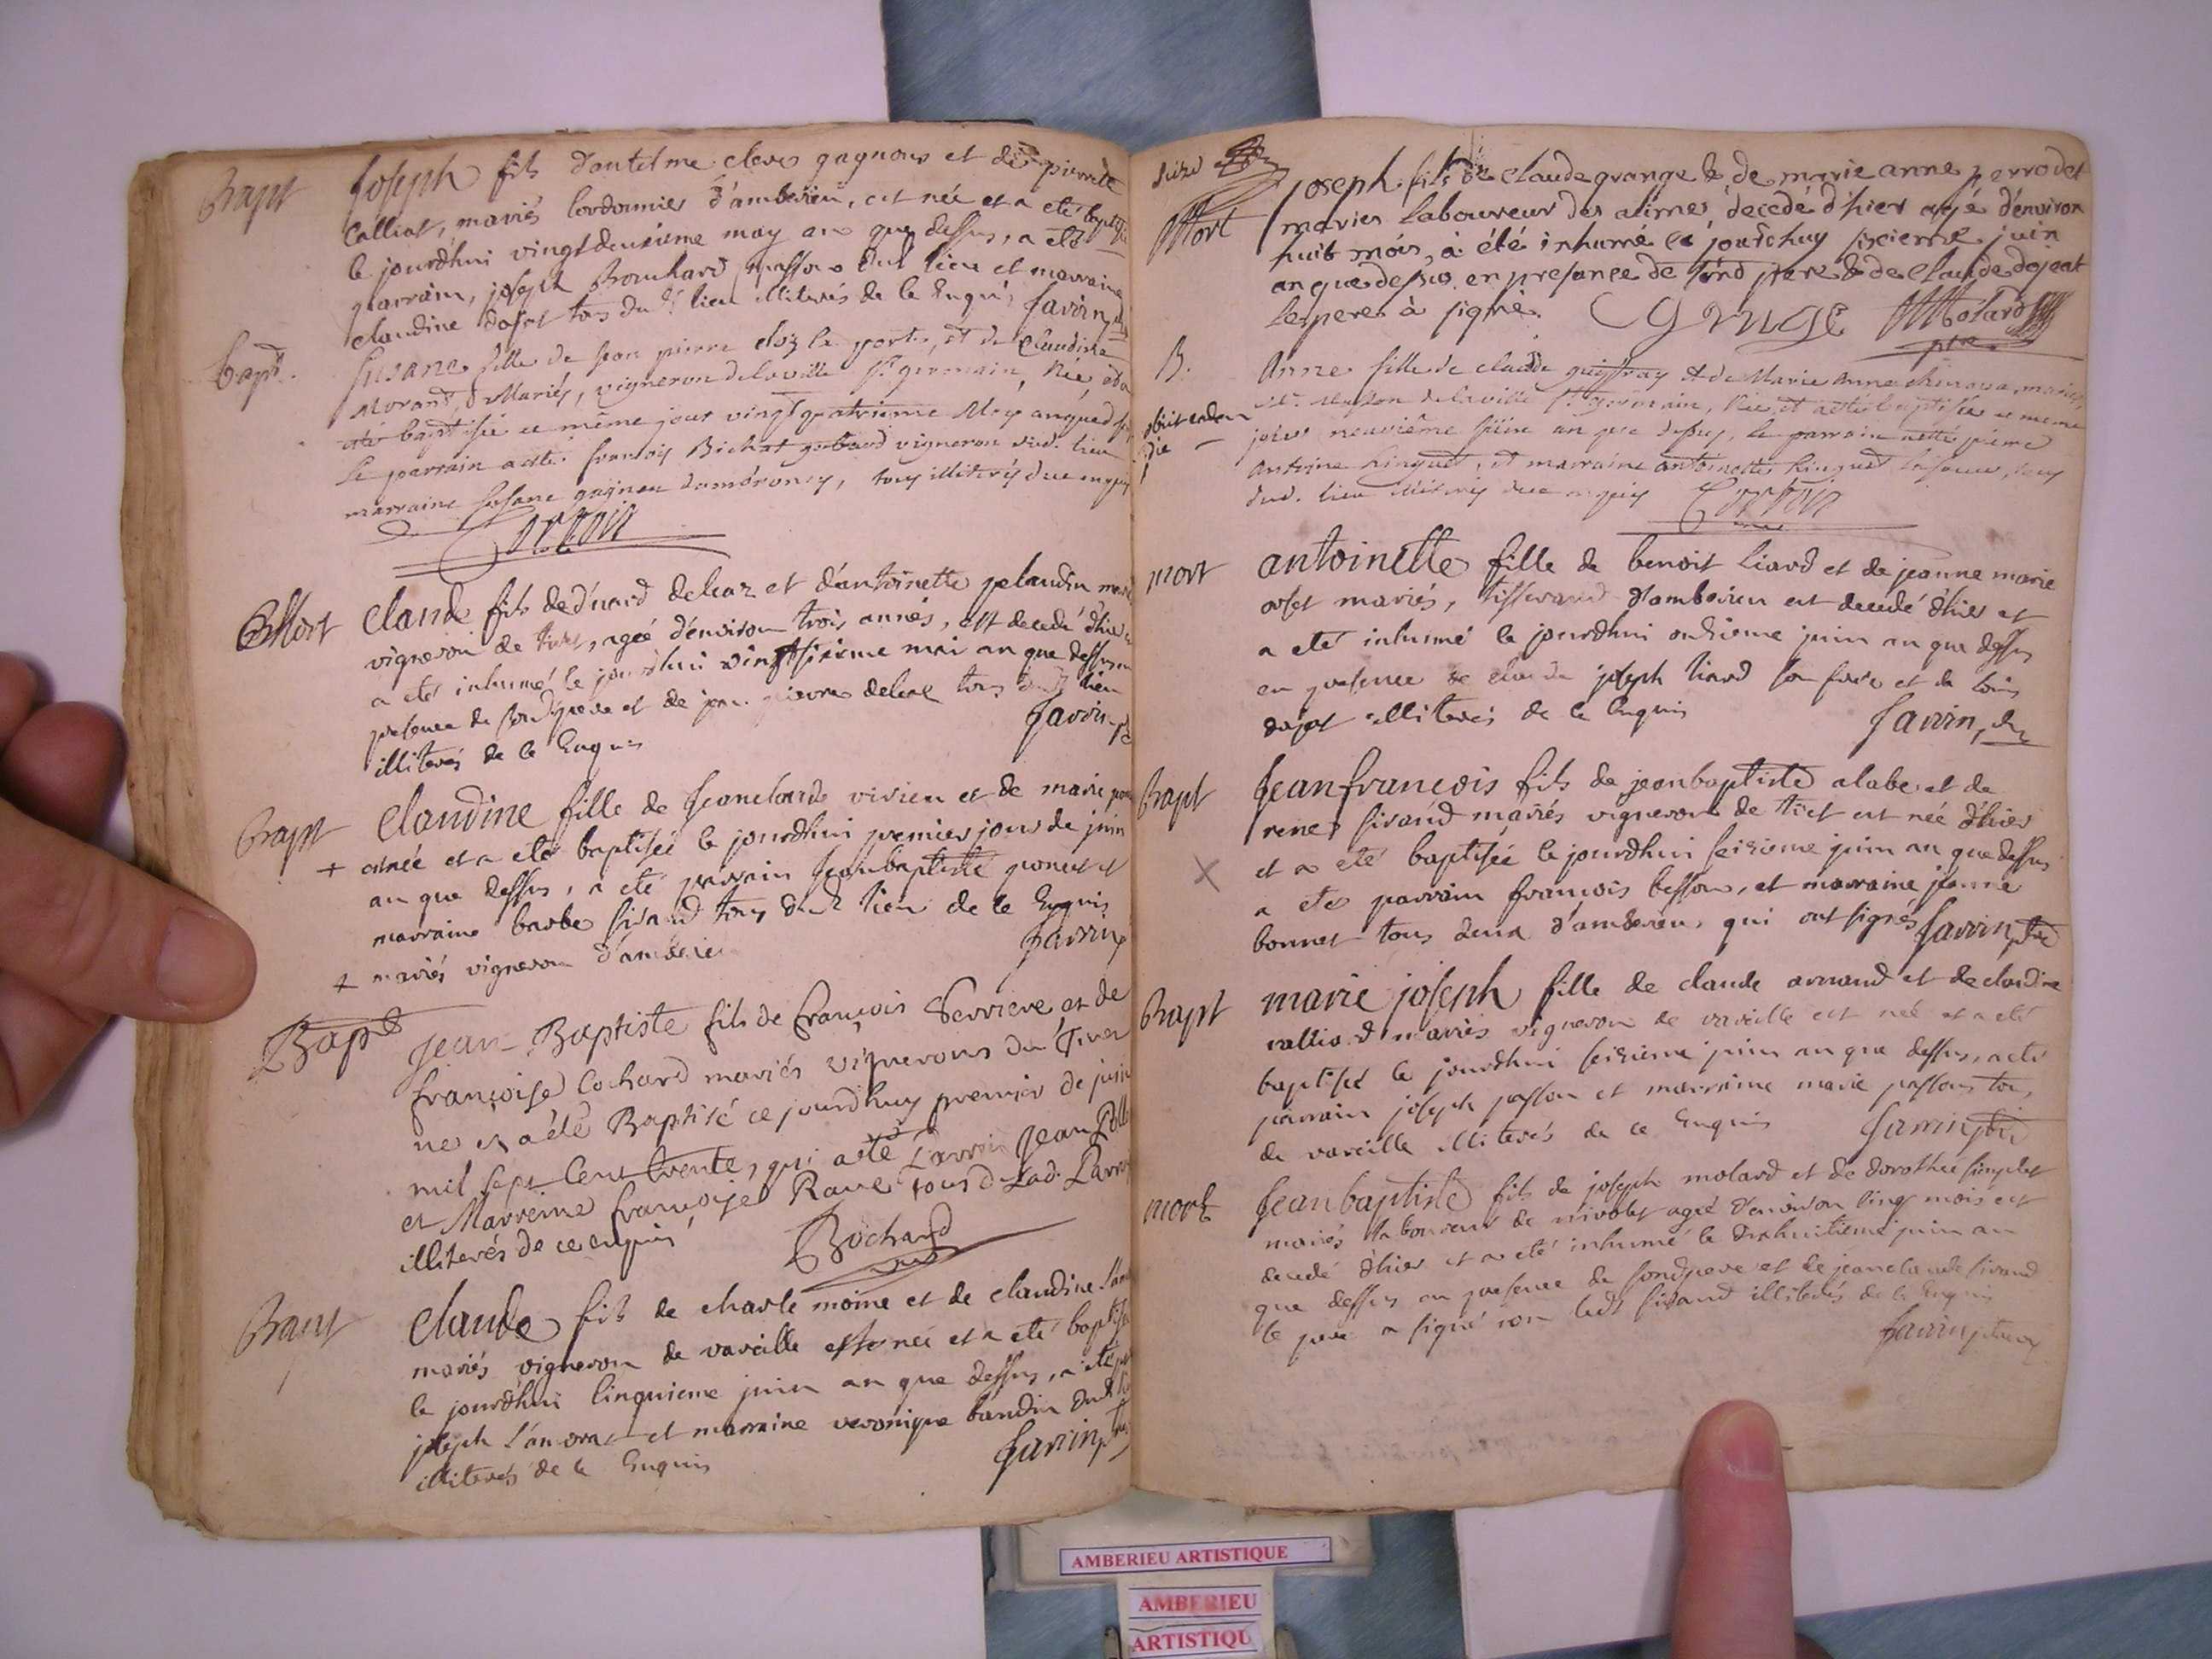 Bapt
Joseph fils d'antelme cleve gagnous et de pierrette
Calliat, mariés Cordonnier d'amberieu, est née et a eté baptisé
le jourdhui vingtdeuxieme may an que dessus, a eté
parrain, joseph Bouchard masson dud lieu et marraine
claudine dojat tous du dt lieu illiterés de ce Enquis Savrin
bapt.
Susane fille de Jean pierre de la porte, et de Claudine
Morand, Mariés, vigneron de la ville St germain, Née, et a
eté baptisée ce même jour vingt quatrieme May an que dessus
Le parrain a etté francois Bichat vigneron dud. lieu
marraine Susane gagneu damérony, tous illiterés de ce enquis
Mort
Claude fils de d'nard deleaz et d'antoinette jelaudin mariés
vigneron de tiret, agéé d'environ trois années, est decedé d'hier
a eté inhumé le jourdhui vingtsixieme mai an que dessus en
presence de sondt pere et de jean pierre deleaz tous dudt lieu
illiterés de ce Enquis
Savrin
Bapt
Claudine fille de Jeanclaude vivien et de marie
+ est née et a eté baptisée le jourdhui premier jour de juin
an que dessus, a eté parrain Jeanbaptiste et
marraine barbe sirand tous dudt lieu de ce Enquis
+ mariés vigneron d'amberieu
Savrin
Bapt
Jean-Baptiste fils de françois Perriere et de
françoise Cochard mariés vignerons du Tiret
né et a été Baptisé ce jourdhuy premier de juin
mil sept Cent trente, qui a eté Parrain Jean
et Marreine françoise Rave tous d Lad. Parr
illiterés de ce enquis
Bochard
Bapt
Claude fils de charle moine et de claudine
mariés vigneron de vareille est née et a eté baptisé
le jourdhui Cinquieme juin an que dessus, a eté
joseph L'amorat et marraine veronique baudin dudt
illiterés de ce Enquis
Savrin
Mort
joseph fils de claude grange & de marie anne perrodet
mariés laboureur des alimes, decedé d'hier agé d'environ
huit mois, à été inhumé ce jourdhuy sixieme juin
an que dessus en presance de sond pere & de claude dojeat
le pere à signé. Grange Molard
ptre
B.
obiit eadem
die
Anne fille de claude guiffray et de Marie Anne mariés,
Masson de la ville St germain, Née, et a etté baptisée ce meme
jour neuvième juin an que dessus, le parrain a etté pierre
Antoine hinguet, et marraine antoinette hinguet sa soeur, tous
dud. lieu illiterés de ce enquis
mort
antoinette fille de benoit liard et de jeanne marie
orset mariés, tisserand d'amberieu est decedé d'hier et
a eté inhumé le jourdhui onzieme juin an que dessus
en presence de claude joseph liard son frere et de louis
dojat illiterés de ce Enquis
Savrin, ptre
Bapt
Jeanfrancois fils de jeanbaptiste alabe et de
rene sirand mariés vigneron de tiret est née d'hier
et a eté baptisée le jourdhui seizieme juin an que dessus
a eté parrain francois besson, et marraine jeanne
bonnet tous deux d'amberieu, qui ont signés Savrin ptre
Bapt
marie joseph fille de claude arnaud et de claudine
valliod mariés vigneron de vareille est née et a eté
baptisée le jourdhui seizieme juin an que dessus, a eté
parrain joseph passon et marraine marie passon tous
de vareille illiterés de ce Enquis
Savrin ptre
mort
Jeanbaptiste fils de joseph molard et de dorothée simplet
mariés laboureur de nivolet agéé d'environ Cinq mois est
decedé d'hier et a eté inhumé le dixhuitieme juin an
que dessus en presence de sondt pere et de jeanclaude sirand
le pere a signé non ledt sirand illiterés de ce Enquis
Savrin ptre
AMBERIEU ARTISTIQUE
AMBERIEU
ARTISTIQU